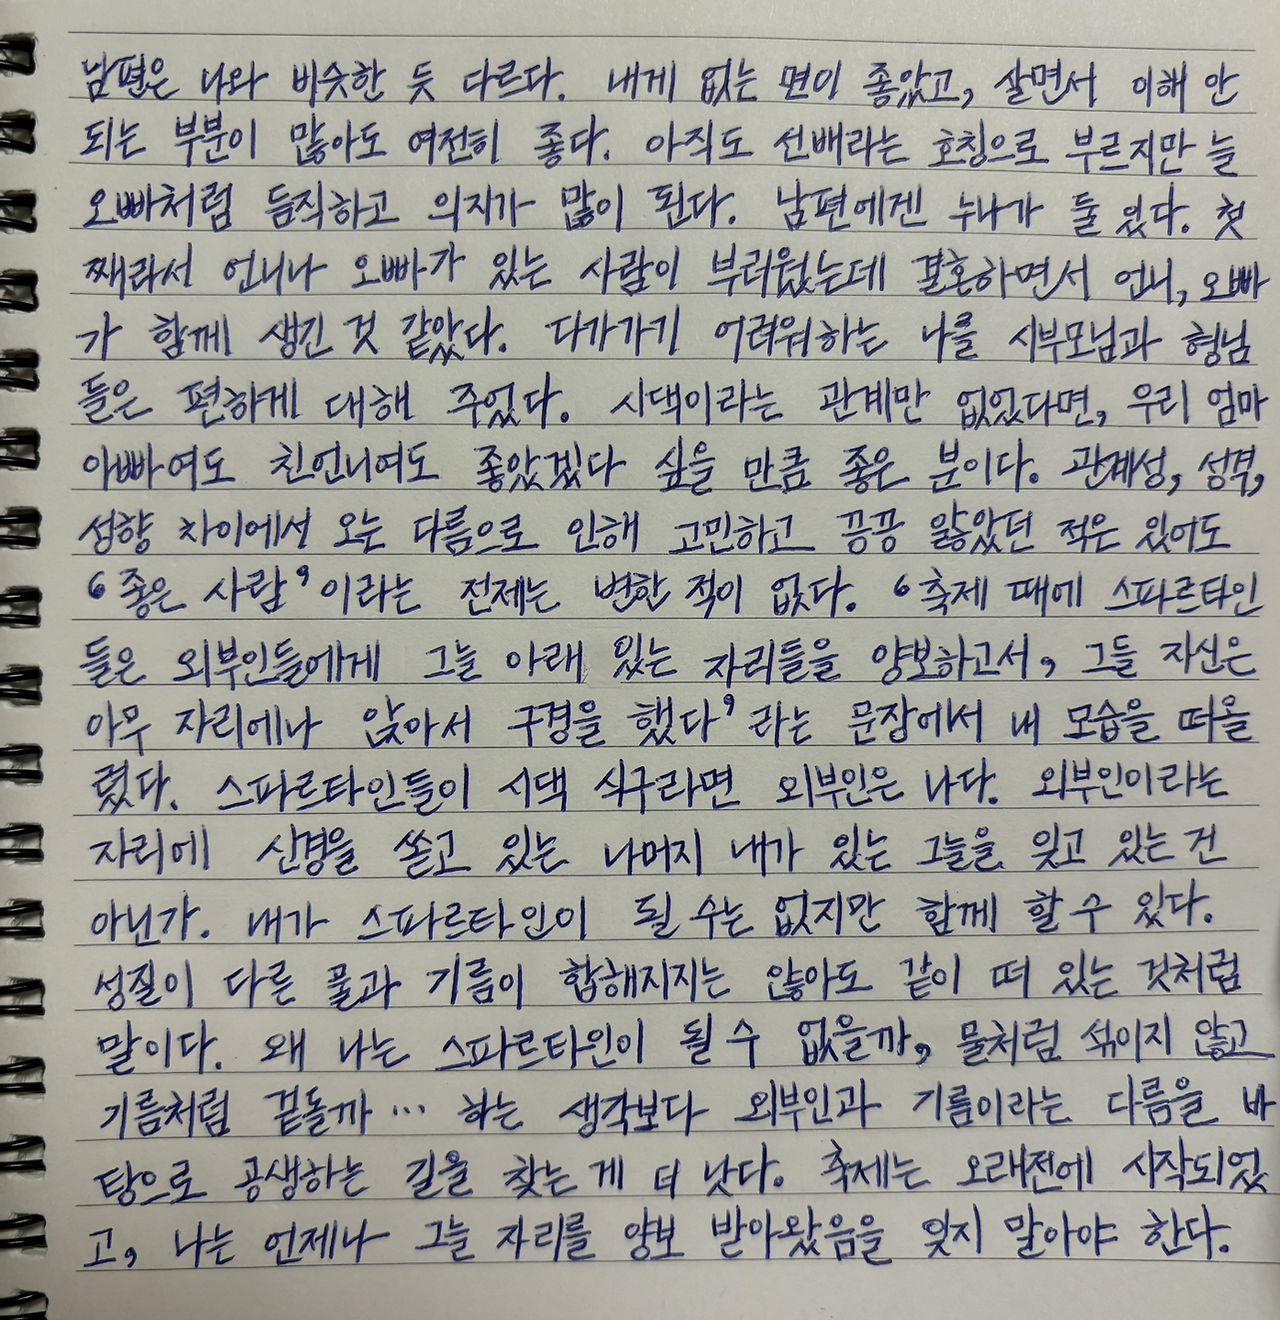 남편은 나와 비슷한 듯 다르다. 내게 없는 면이 좋았고, 살면서 이해 안
되는 부분이 많아도 여전히 좋다. 아직도 선배라는 호칭으로 부르지만 늘
오빠처럼 듬직하고 의지가 많이 된다. 남편에겐 누나가 둘 있다. 첫
째라서 언니나 오빠가 있는 사람이 부러웠는데 결혼하면서 언니, 오빠
가 함께 생긴 것 같았다. 다가가기 어려워하는 나를 시부모님과 형님
들은 편하게 대해 주었다. 시댁이라는 관계만 없었다면, 우리 엄마
아빠여도 친언니여도 좋았겠다 싶을 만큼 좋은 분이다. 관계성, 성격,
성향 차이에서 오는 다름으로 인해 고민하고 끙끙 앓았던 적은 있어도
‘좋은 사람’이라는 전제는 변한 적이 없다. ‘축제 때에 스파르타인
들은 외부인들에게 그늘 아래 있는 자리들을 양보하고서, 그들 자신은
아무 자리에나 앉아서 구경을 했다’라는 문장에서 내 모습을 떠올
렸다. 스파르타인들이 시댁 식구라면 외부인은 나다. 외부인이라는
자리에 신경을 쏟고 있는 나머지 내가 있는 그늘을 잊고 있는 건
아닌가. 내가 스파르타인이 될 수는 없지만 함께 할 수 있다.
성질이 다른 물과 기름이 합해지지는 않아도 같이 떠 있는 것처럼
말이다. 왜 나는 스파르타인이 될 수 없을까, 물처럼 섞이지 않고
기름처럼 겉돌까… 하는 생각보다 외부인과 기름이라는 다름을 바
탕으로 공생하는 길을 찾는 게 더 낫다. 축제는 오래전에 시작되었
고, 나는 언제나 그늘 자리를 양보 받아왔음을 잊지 말아야 한다.